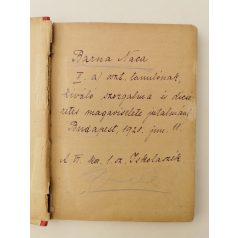 Barna Naca
I. a) oszt. tanulónak,
kiváló szorgalma és dicsé
retes magaviselete jutalmául
Budapest, 1921. jun. 11.
A VI. ker. 1 sz. Iskolaszék